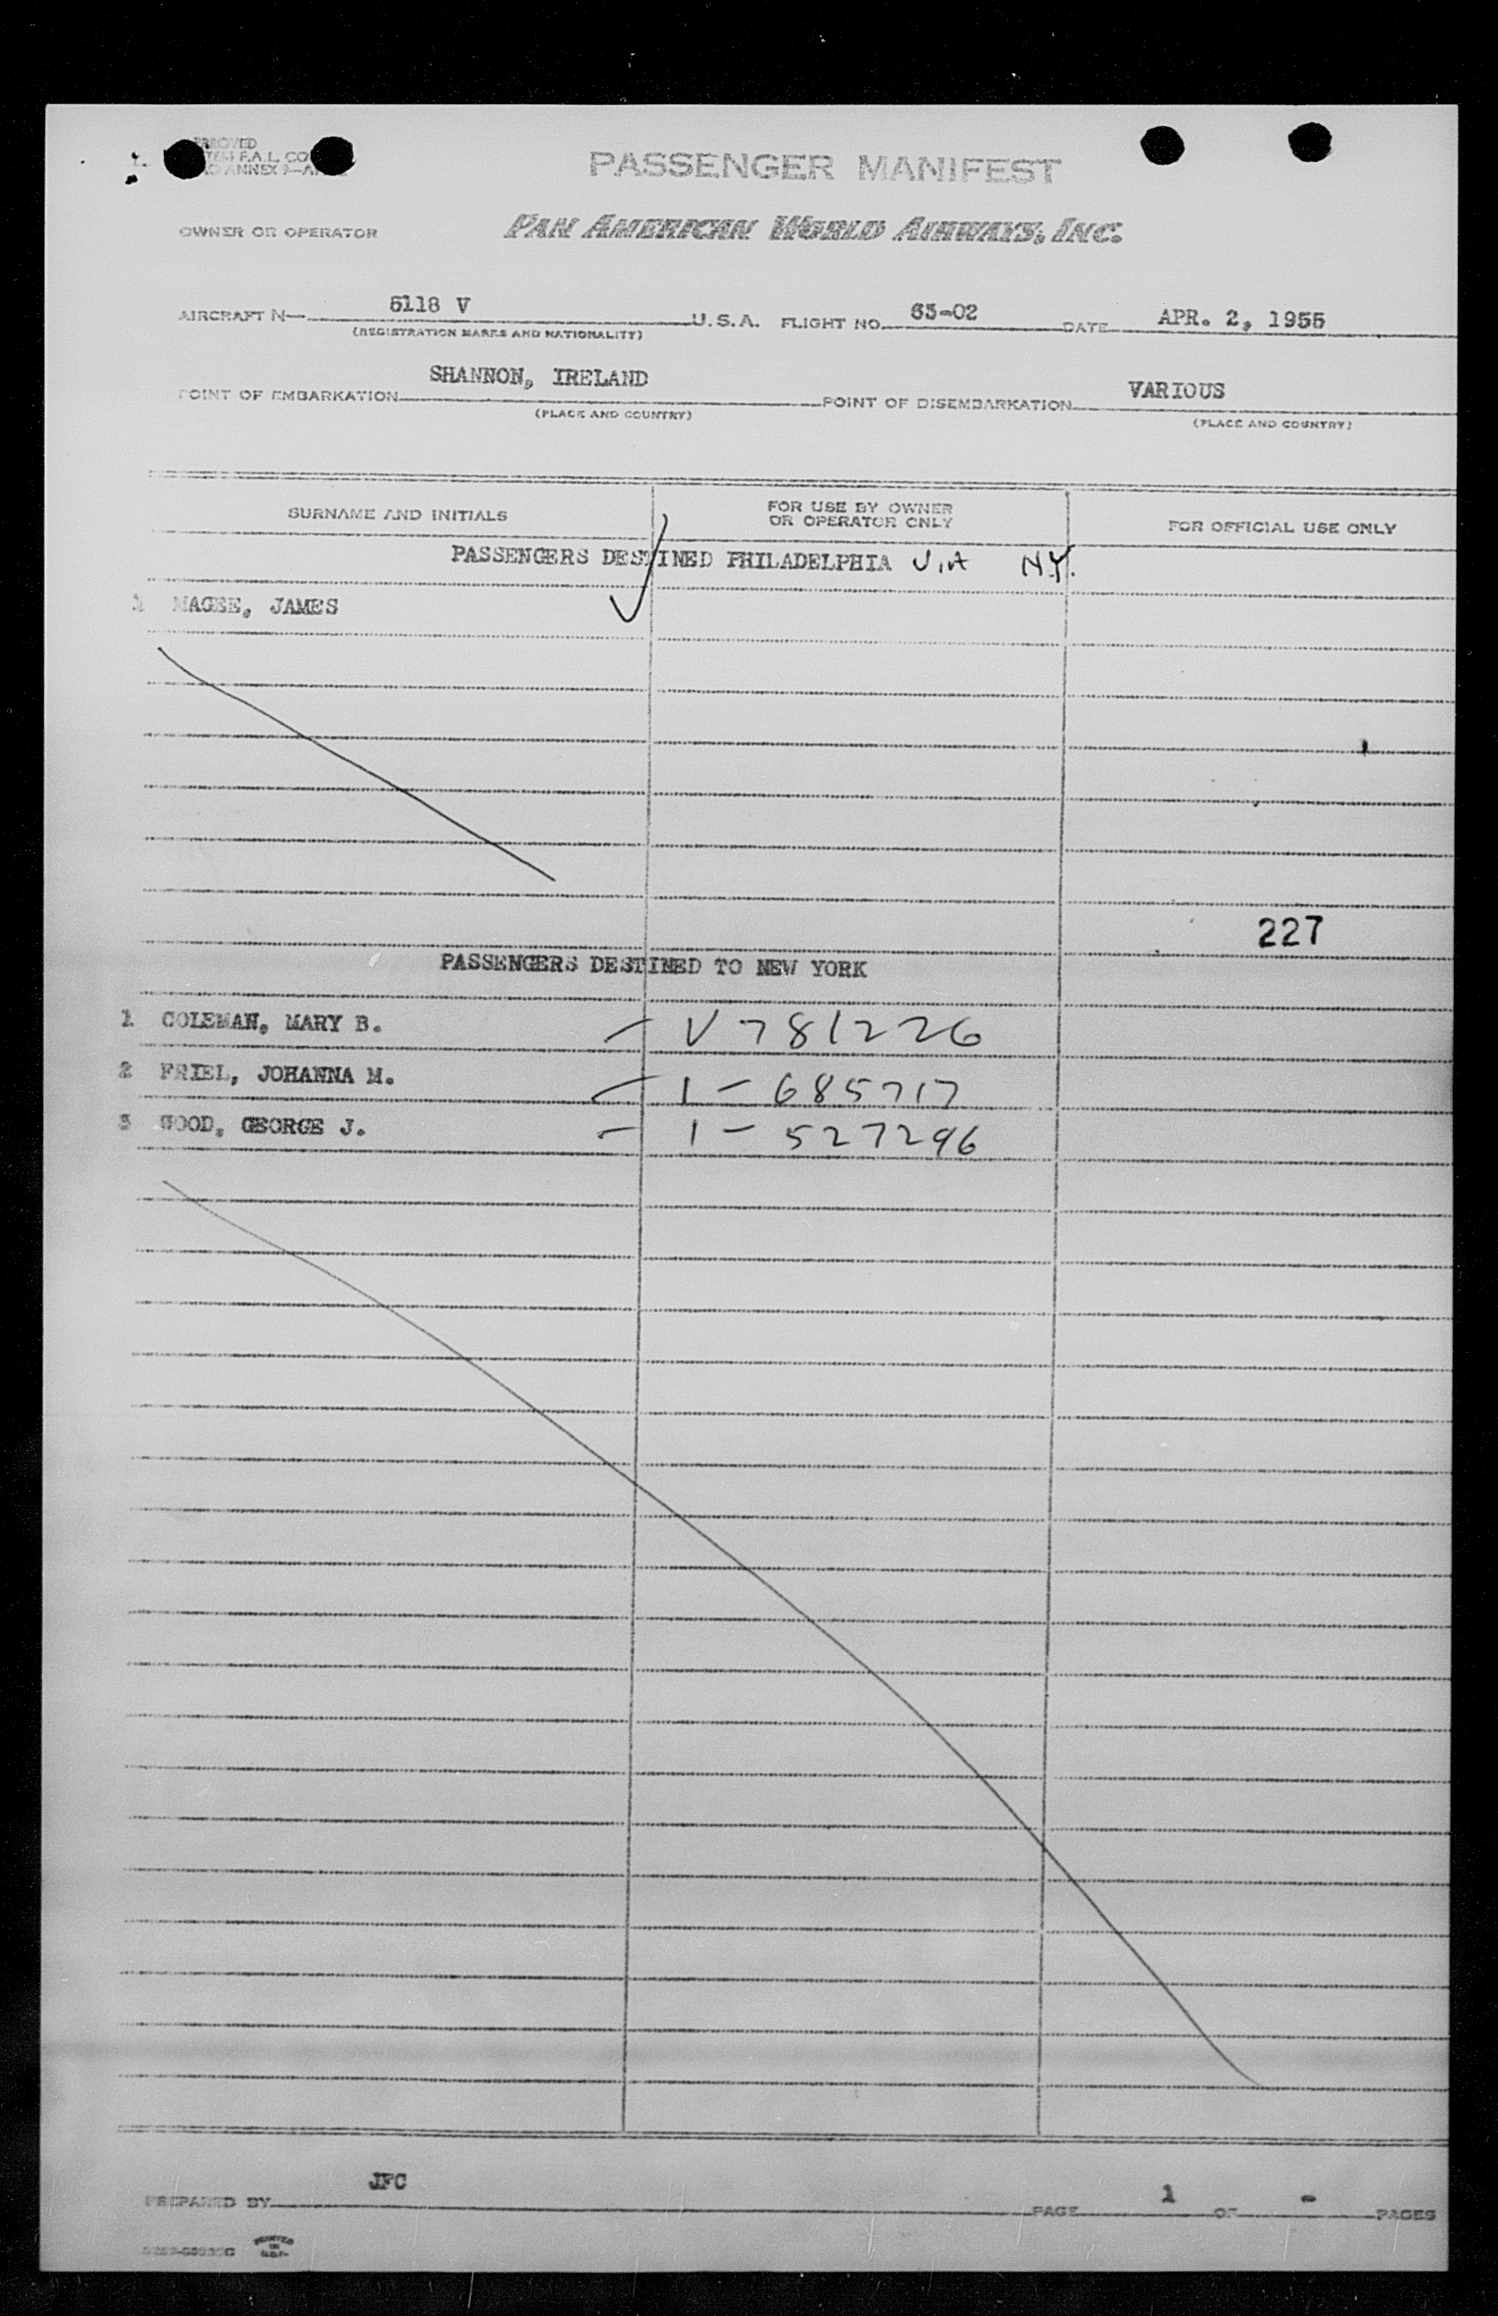 PASSENGER MANIFEST
OWNER OR OPERATOR PAN AMERICAN WORLD AIRWAYS, INC.
AIRCRAFT N— 6118 V U.S.A. FLIGHT NO. 65-02 DATE APR. 2, 1955
(REGISTRATION MARKS AND NATIONALITY)
POINT OF EMBARKATION SHANNON, IRELAND POINT OF DISEMBARKATION VARIOUS
(PLACE AND COUNTRY) (PLACE AND COUNTRY)
SURNAME AND INITIALS FOR USE BY OWNER OR OPERATOR ONLY FOR OFFICIAL USE ONLY
PASSENGERS DESTINED PHILADELPHIA VIA N.Y.
1 MAGEE, JAMES
227
PASSENGERS DESTINED TO NEW YORK
1 COLEMAN, MARY B. — V781226
2 FRIEL, JOHANNA M. — 1-685717
3 GOOD, GEORGE J. — 1-527296
PREPARED BY JFC PAGE 1 OF - PAGES
PRINTED IN U.S.A.